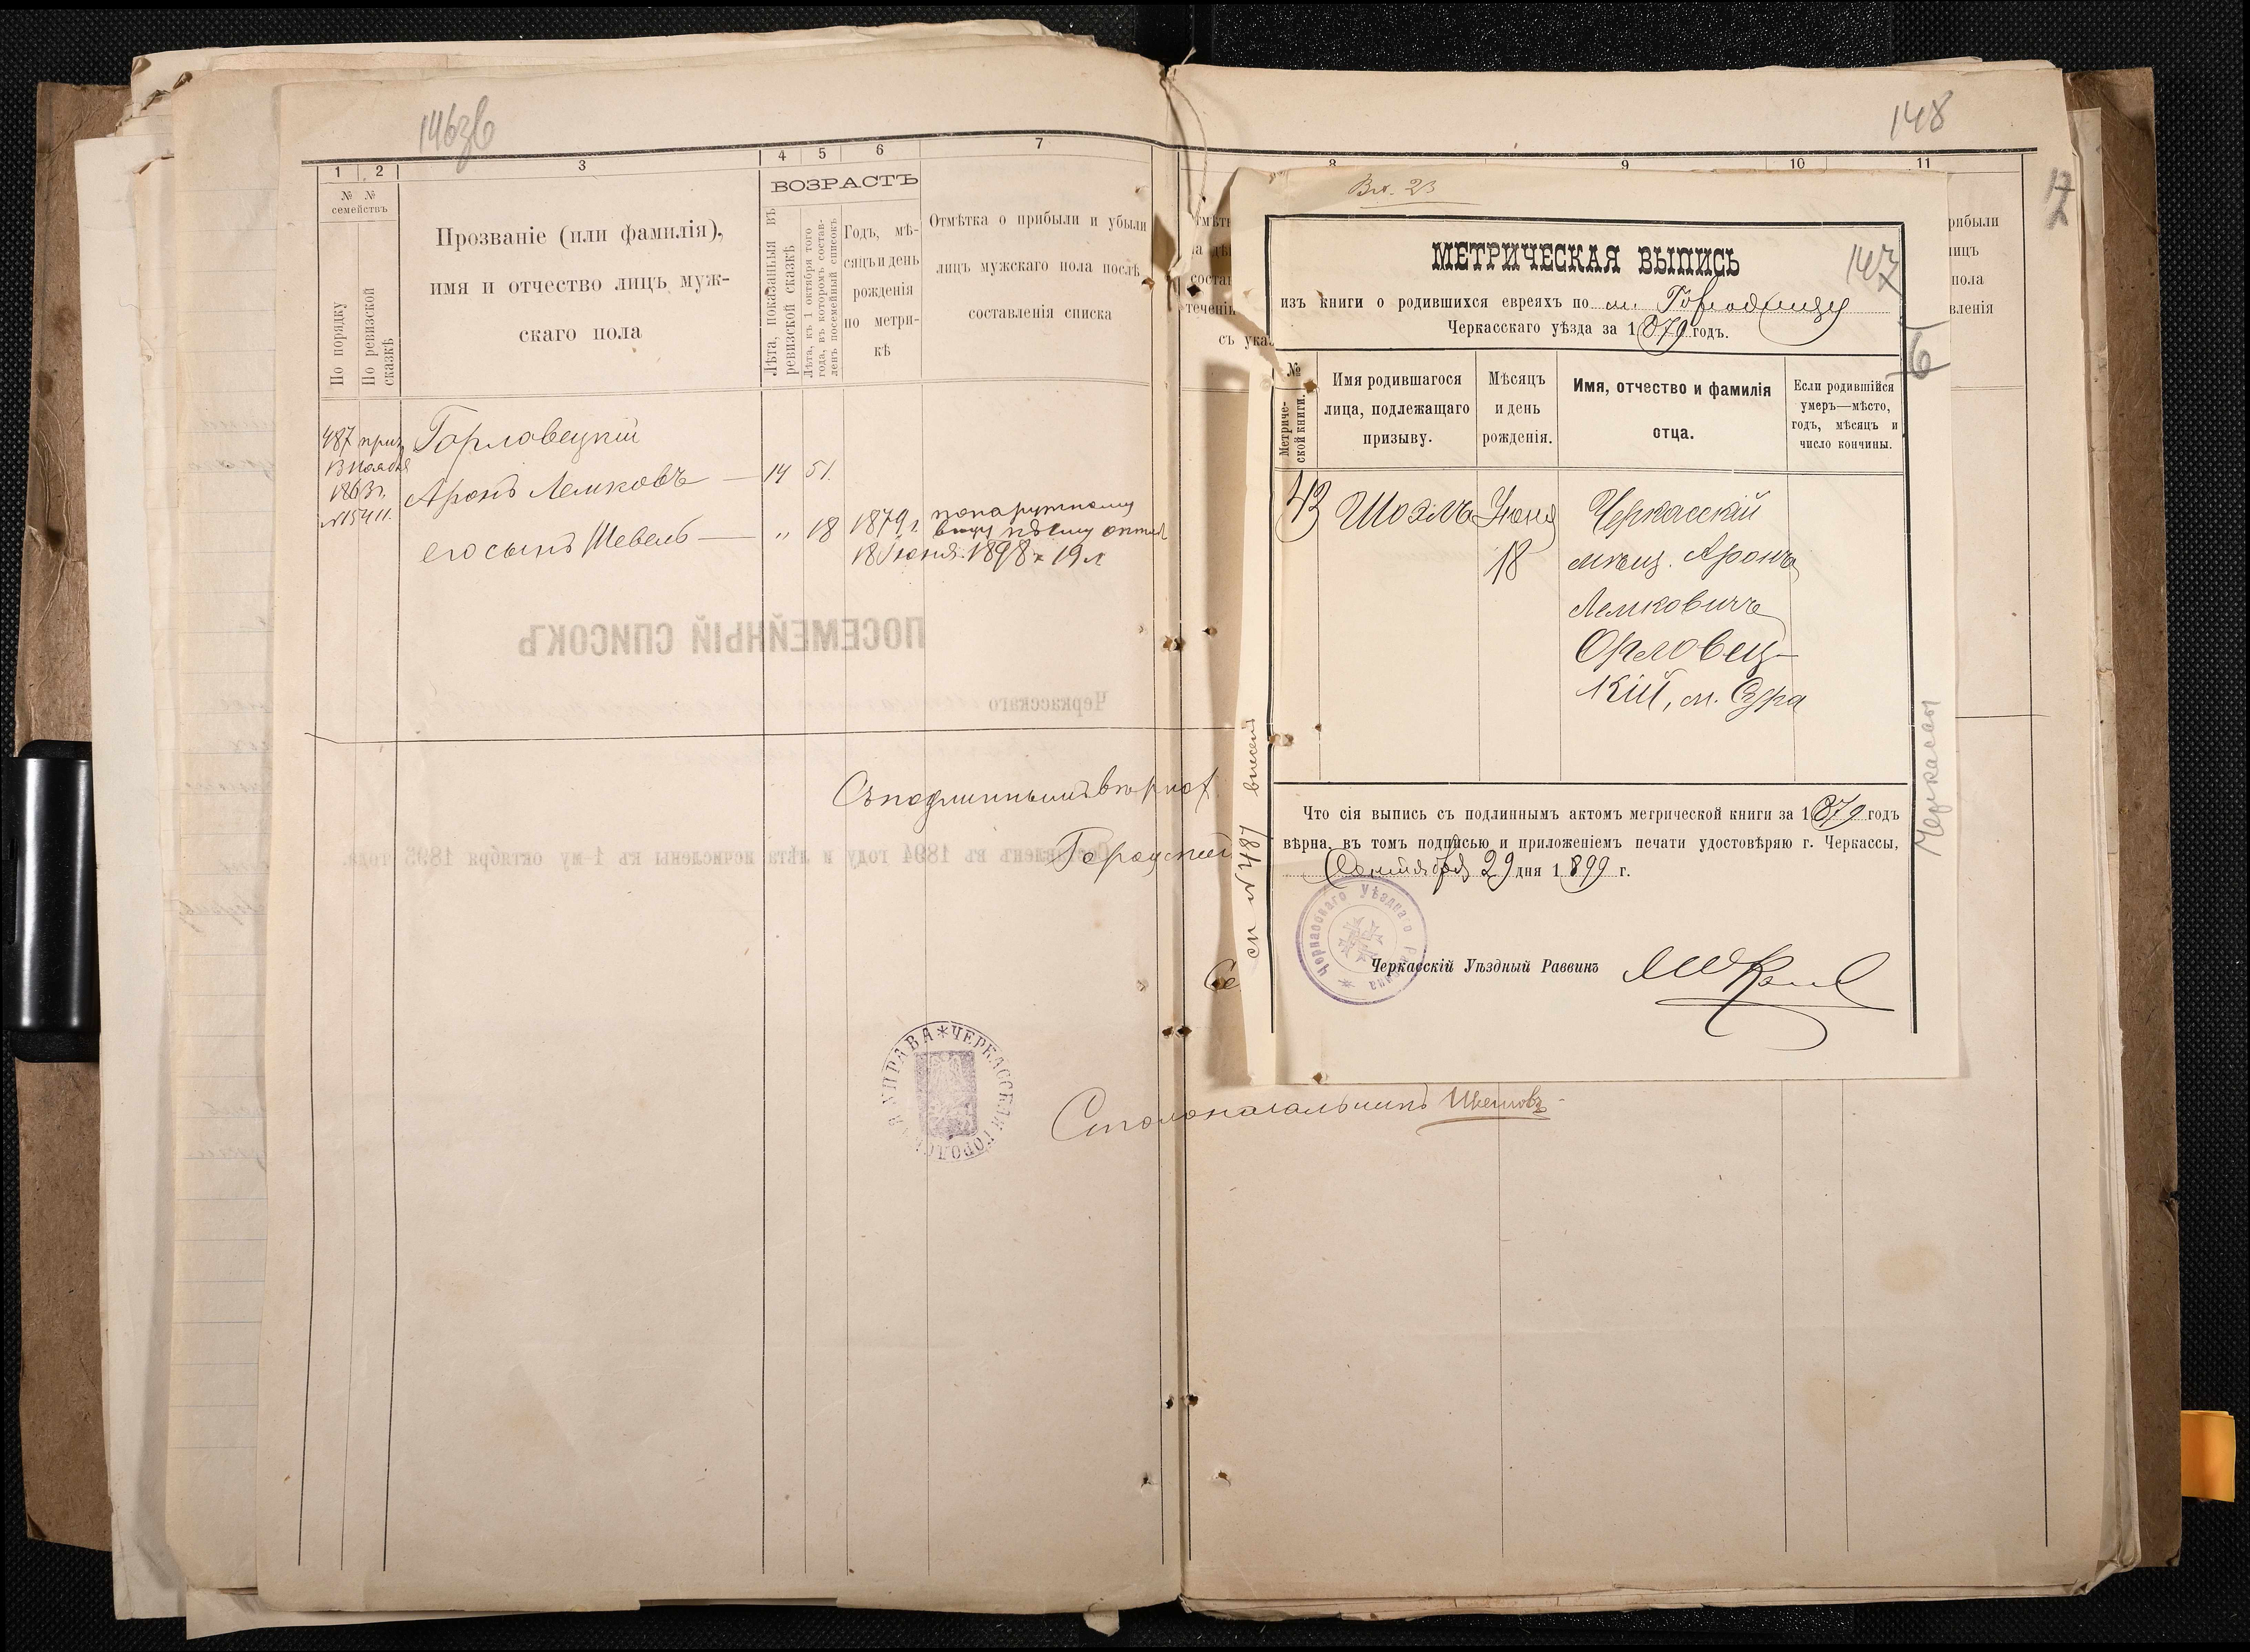 146 зв
1 2 3 4 5 6 7
№ №
семействъ
По порядку
По ревизской
сказкѣ
Прозваніе (или фамилія),
имя и отчество лицъ муж-
скаго пола
ВОЗРАСТЪ
Лѣта, показанныя въ
ревизской сказкѣ
Лѣта, къ 1 октября того
года, въ которомъ состав-
ленъ посемейный списокъ
Годъ, мѣ-
сяцъ и день
рожденія
по метри-
кѣ
Отмѣтка о прибыли и убыли
лицъ мужскаго пола послѣ
составленія списка
487
1863 г.
№ 15411.
Горловецкій
Аронъ Лемковъ — 14 51.
его сынъ Шевель — „ 18
1879 г.
18 Іюня.
понаружному
виду
1898 г 19 л
ПОСЕМЕЙНЫЙ СПИСОКЪ
Черкасскаго
Составленъ въ 1894 году и лѣта исчислены къ 1-му октября 1895 года.
Съ подлиннымъ вѣрно
ЧЕРКАССКАЯ ГОРОДСКАЯ УПРАВА
Столоначальникъ
148
17
8 9 10 11
рибыли
лицъ
пола
вленія
147
МЕТРИЧЕСКАЯ ВЫПИСЬ
изъ книги о родившихся евреяхъ по м. Городищу
Черкасскаго уѣзда за 1879 годъ.
6
№
Метриче-
ской книги.
Имя родившагося
лица, подлежащаго
призыву.
Мѣсяцъ
и день
рожденія.
Имя, отчество и фамилія
отца.
Если родившійся
умеръ—мѣсто,
годъ, мѣсяцъ и
число кончины.
43 Шоэлъ Іюня
18
Черкасскій
мѣщ. Аронъ
Лемковичъ
Орловец-
кій, м. Сура
Что сія выпись съ подлиннымъ актомъ метрической книги за 1879 годъ
вѣрна, въ томъ подписью и приложеніемъ печати удостовѣряю г. Черкассы,
Сентября 29 дня 1899 г.
Черкасскаго Уѣзднаго Раввина
Черкасскій Уѣздный Раввинъ
Черкассы
см № 487